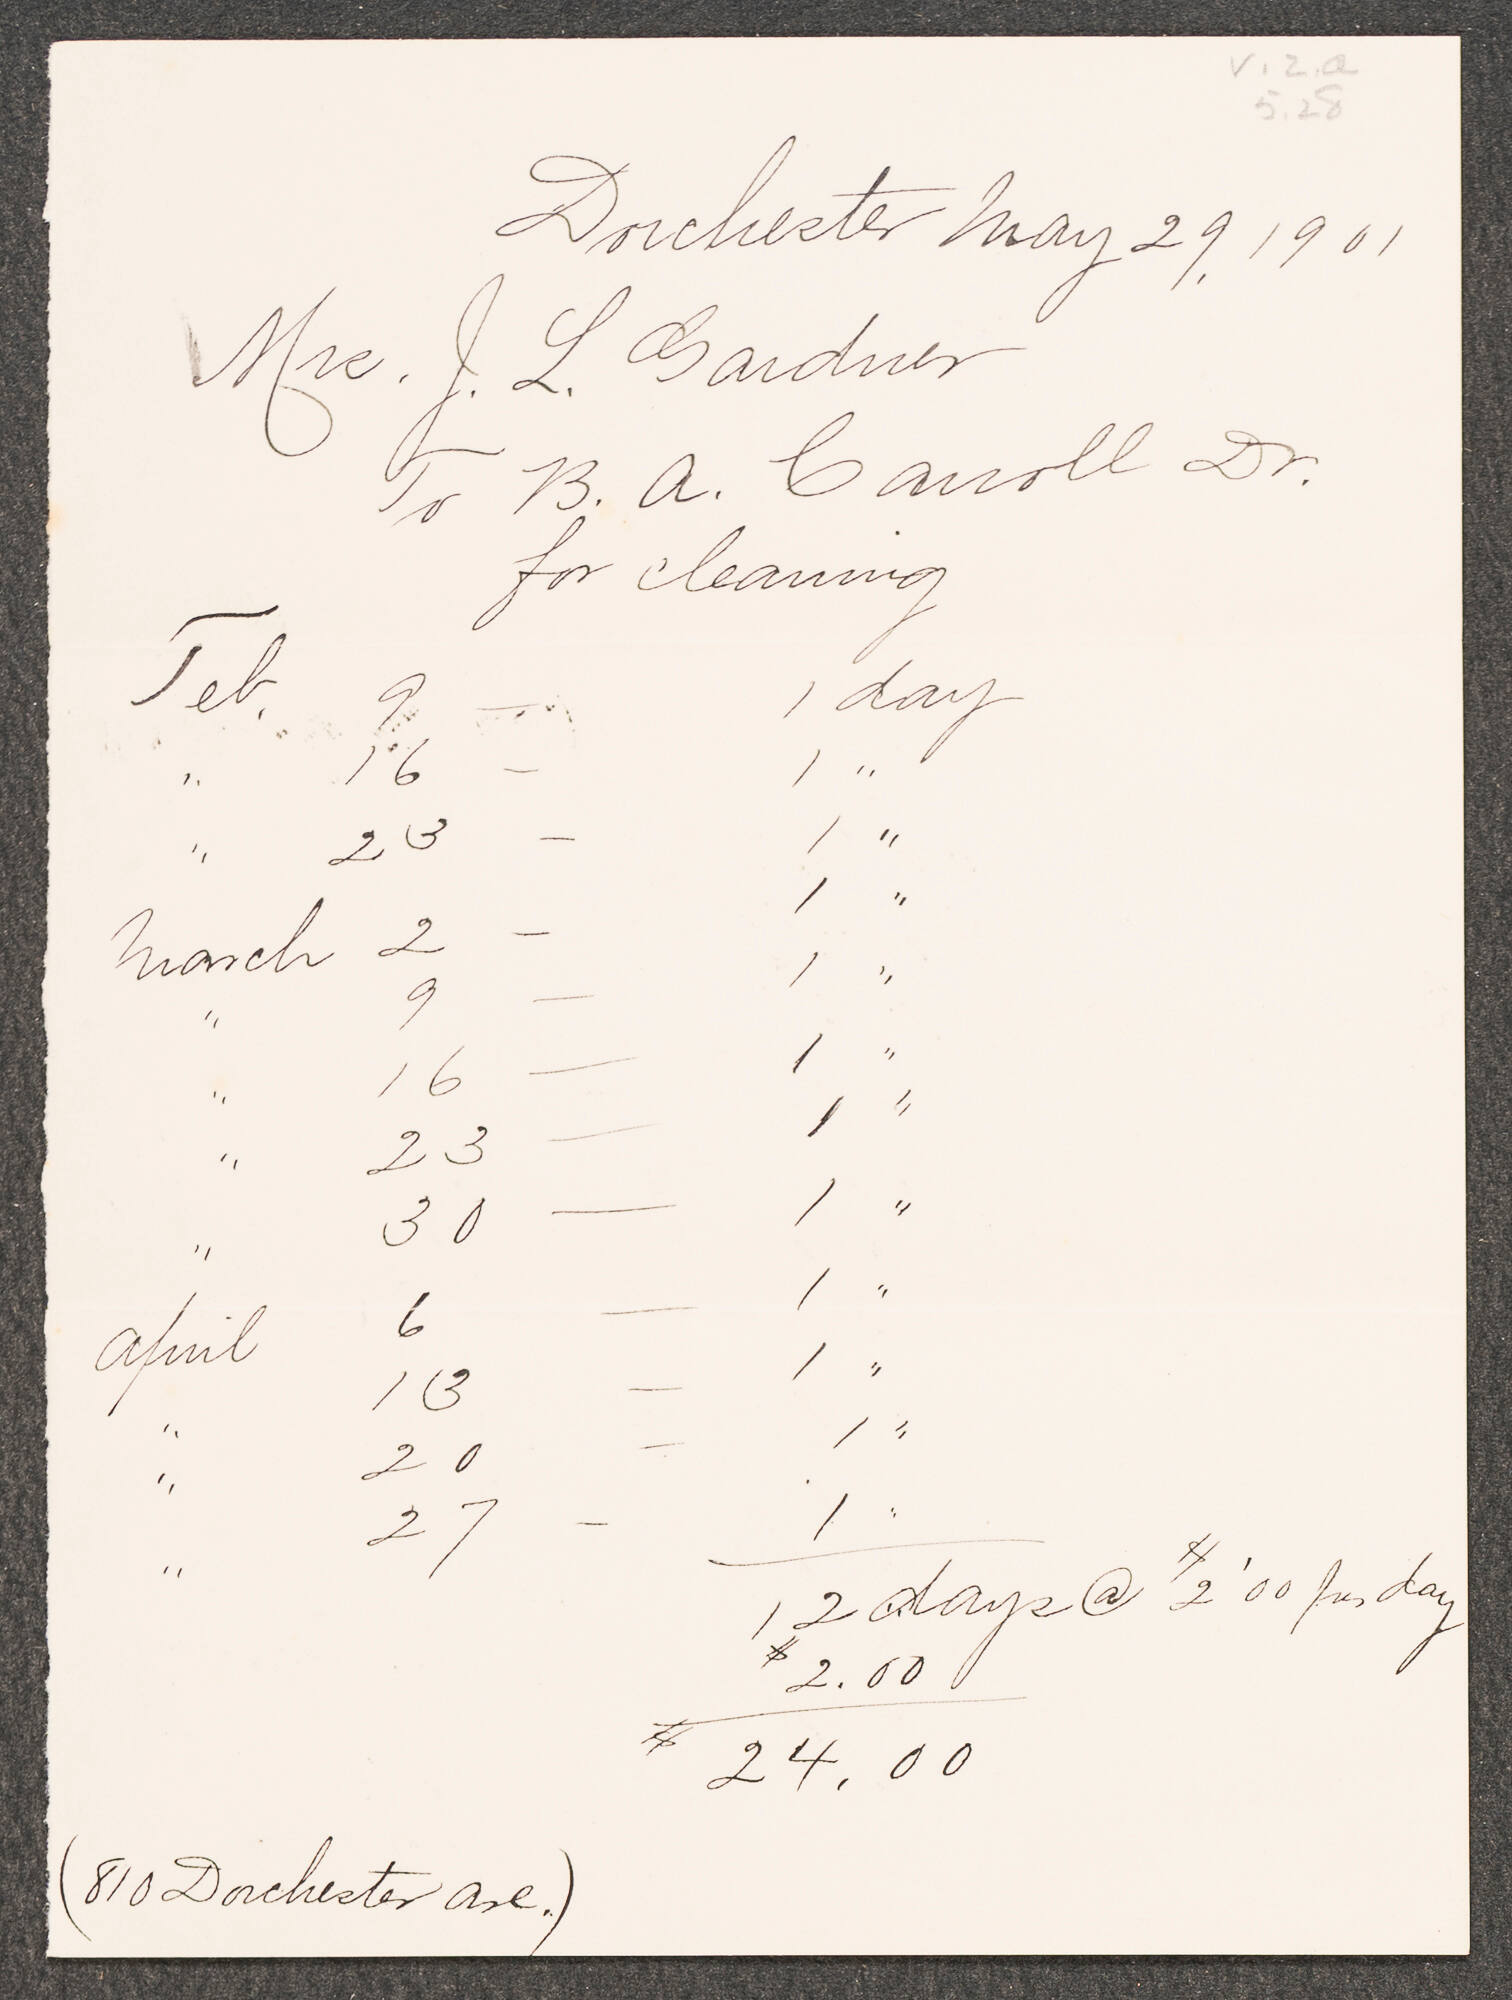 V.2.a
5.28
Dorchester May 29, 1901
Mrs. J. L. Gardner
To B. A. Carroll Dr.
for cleaning
Feb. 9 — 1 day
" 16 — 1 "
" 23 — 1 "
March 2 — 1 "
" 9 — 1 "
" 16 — 1 "
" 23 — 1 "
" 30 — 1 "
April 6 — 1 "
" 13 — 1 "
" 20 — 1 "
" 27 — 1 "
12 days @ $2.00 per day
$2.00
$24.00
(810 Dorchester Ave.)